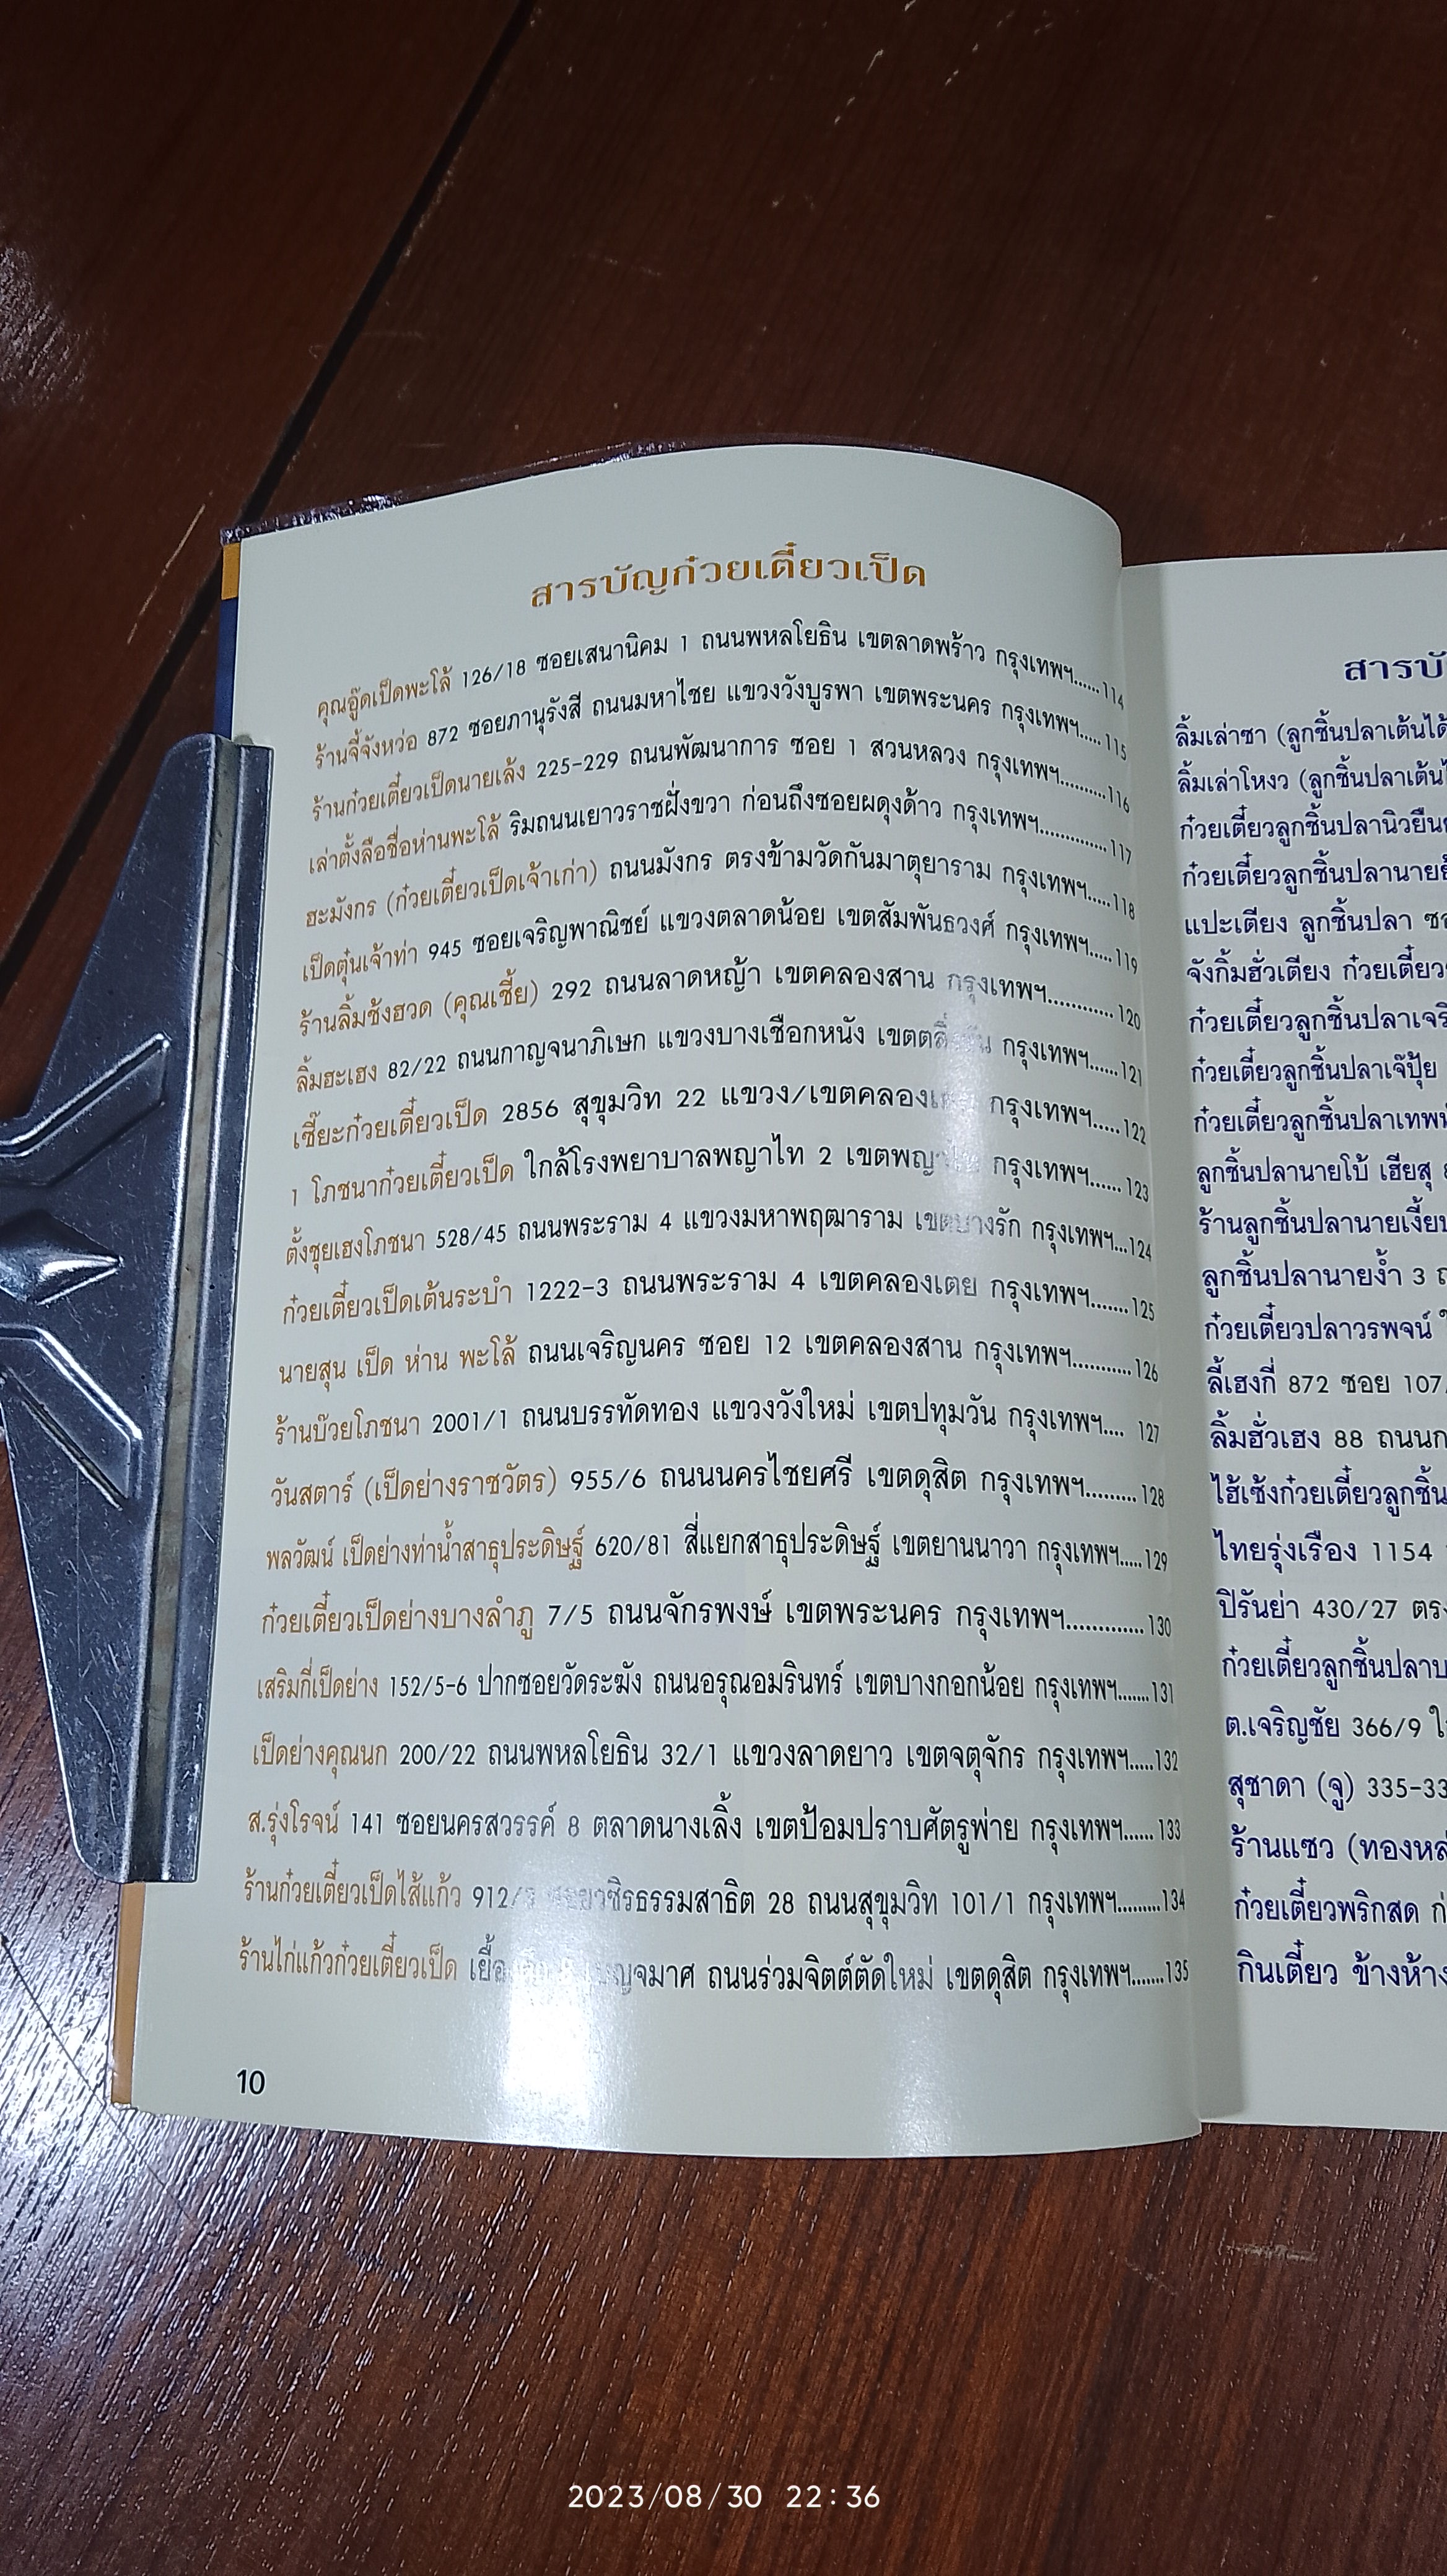 สารบัญก๋วยเตี๋ยวเป็ด
คุณอู๊ดเป็ดพะโล้ 126/18 ซอยเสนานิคม 1 ถนนพหลโยธิน เขตลาดพร้าว กรุงเทพฯ......114
ร้านจี้จังหว่อ 872 ซอยภานุรังสี ถนนมหาไชย แขวงวังบูรพา เขตพระนคร กรุงเทพฯ.....115
ร้านก๋วยเตี๋ยวเป็ดนายเล้ง 225-229 ถนนพัฒนาการ ซอย 1 สวนหลวง กรุงเทพฯ..........116
เล่าตั้งลือชื่อห่านพะโล้ ริมถนนเยาวราชฝั่งขวา ก่อนถึงซอยผดุงด้าว กรุงเทพฯ..............117
ฮะมังกร (ก๋วยเตี๋ยวเป็ดเจ้าเก่า) ถนนมังกร ตรงข้ามวัดกันมาตุยาราม กรุงเทพฯ.....118
เป็ดตุ๋นเจ้าท่า 945 ซอยเจริญพาณิชย์ แขวงตลาดน้อย เขตสัมพันธวงศ์ กรุงเทพฯ.....119
ร้านลิ้มซ้งฮวด (คุณเชี้ย) 292 ถนนลาดหญ้า เขตคลองสาน กรุงเทพฯ............120
ลิ้มฮะเฮง 82/22 ถนนกาญจนาภิเษก แขวงบางเชือกหนัง กรุงเทพฯ......121
เซี๊ยะก๋วยเตี๋ยวเป็ด 2856 สุขุมวิท 22 แขวง/เขตคลอง กรุงเทพฯ.....122
1 โภชนาก๋วยเตี๋ยวเป็ด ใกล้โรงพยาบาลพญาไท 2 กรุงเทพฯ......123
ตั้งชุยเฮงโภชนา 528/45 ถนนพระราม 4 แขวงมหาพฤฒาราม เขตบางรัก กรุงเทพฯ...124
ก๋วยเตี๋ยวเป็ดเต้นระบำ 1222-3 ถนนพระราม 4 เขตคลองเตย กรุงเทพฯ.......125
นายสุน เป็ด ห่าน พะโล้ ถนนเจริญนคร ซอย 12 เขตคลองสาน กรุงเทพฯ...........126
ร้านบ๊วยโภชนา 2001/1 ถนนบรรทัดทอง แขวงวังใหม่ เขตปทุมวัน กรุงเทพฯ.... 127
วันสตาร์ (เป็ดย่างราชวัตร) 955/6 ถนนนครไชยศรี เขตดุสิต กรุงเทพฯ.........128
พลวัฒน์ เป็ดย่างท่าน้ำสาธุประดิษฐ์ 620/81 สี่แยกสาธุประดิษฐ์ เขตยานนาวา กรุงเทพฯ.....129
ก๋วยเตี๋ยวเป็ดย่างบางลำภู 7/5 ถนนจักรพงษ์ เขตพระนคร กรุงเทพฯ.............130
เสริมกี่เป็ดย่าง 152/5-6 ปากซอยวัดระฆัง ถนนอรุณอมรินทร์ เขตบางกอกน้อย กรุงเทพฯ.......131
เป็ดย่างคุณนก 200/22 ถนนพหลโยธิน 32/1 แขวงลาดยาว เขตจตุจักร กรุงเทพฯ.....132
ส.รุ่งโรจน์ 141 ซอยนครสวรรค์ 8 ตลาดนางเลิ้ง เขตป้อมปราบศัตรูพ่าย กรุงเทพฯ......133
ร้านก๋วยเตี๋ยวเป็ดไส้แก้ว 28 ถนนสุขุมวิท 101/1 กรุงเทพฯ.........134
ร้านไก่แก้วก๋วยเตี๋ยวเป็ด ถนนร่วมจิตต์ตัดใหม่ เขตดุสิต กรุงเทพฯ.......135
10
สารบั
ลิ้มเล่าซา (ลูกชิ้นปลาเต้นได้
ลิ้มเล่าโหงว (ลูกชิ้นปลาเต้น
ก๋วยเตี๋ยวลูกชิ้นปลานิวยืน
ก๋วยเตี๋ยวลูกชิ้นปลานาย
แปะเตียง ลูกชิ้นปลา ซ
จังกิ้มฮั่วเตียง ก๋วยเตี๋ยว
ก๋วยเตี๋ยวลูกชิ้นปลาเจริ
ก๋วยเตี๋ยวลูกชิ้นปลาเจ๊ปุ้ย
ก๋วยเตี๋ยวลูกชิ้นปลาเทพ
ลูกชิ้นปลานายโบ้ เฮียสุ
ร้านลูกชิ้นปลานายเงี้ย
ลูกชิ้นปลานายง้ำ 3 ถ
ก๋วยเตี๋ยวปลาวรพจน์
ลี้เฮงกี่ 872 ซอย 107
ลิ้มฮั่วเฮง 88 ถนนก
ไฮ้เซ้งก๋วยเตี๋ยวลูกชิ้น
ไทยรุ่งเรือง 1154
ปิรันย่า 430/27 ตร
ก๋วยเตี๋ยวลูกชิ้นปลาบ
ต.เจริญชัย 366/9 ใ
สุชาดา (จู) 335-33
ร้านแซว (ทองหล่
ก๋วยเตี๋ยวพริกสด ก่
กินเตี๋ยว ข้างห้าง
2023/08/30 22:36